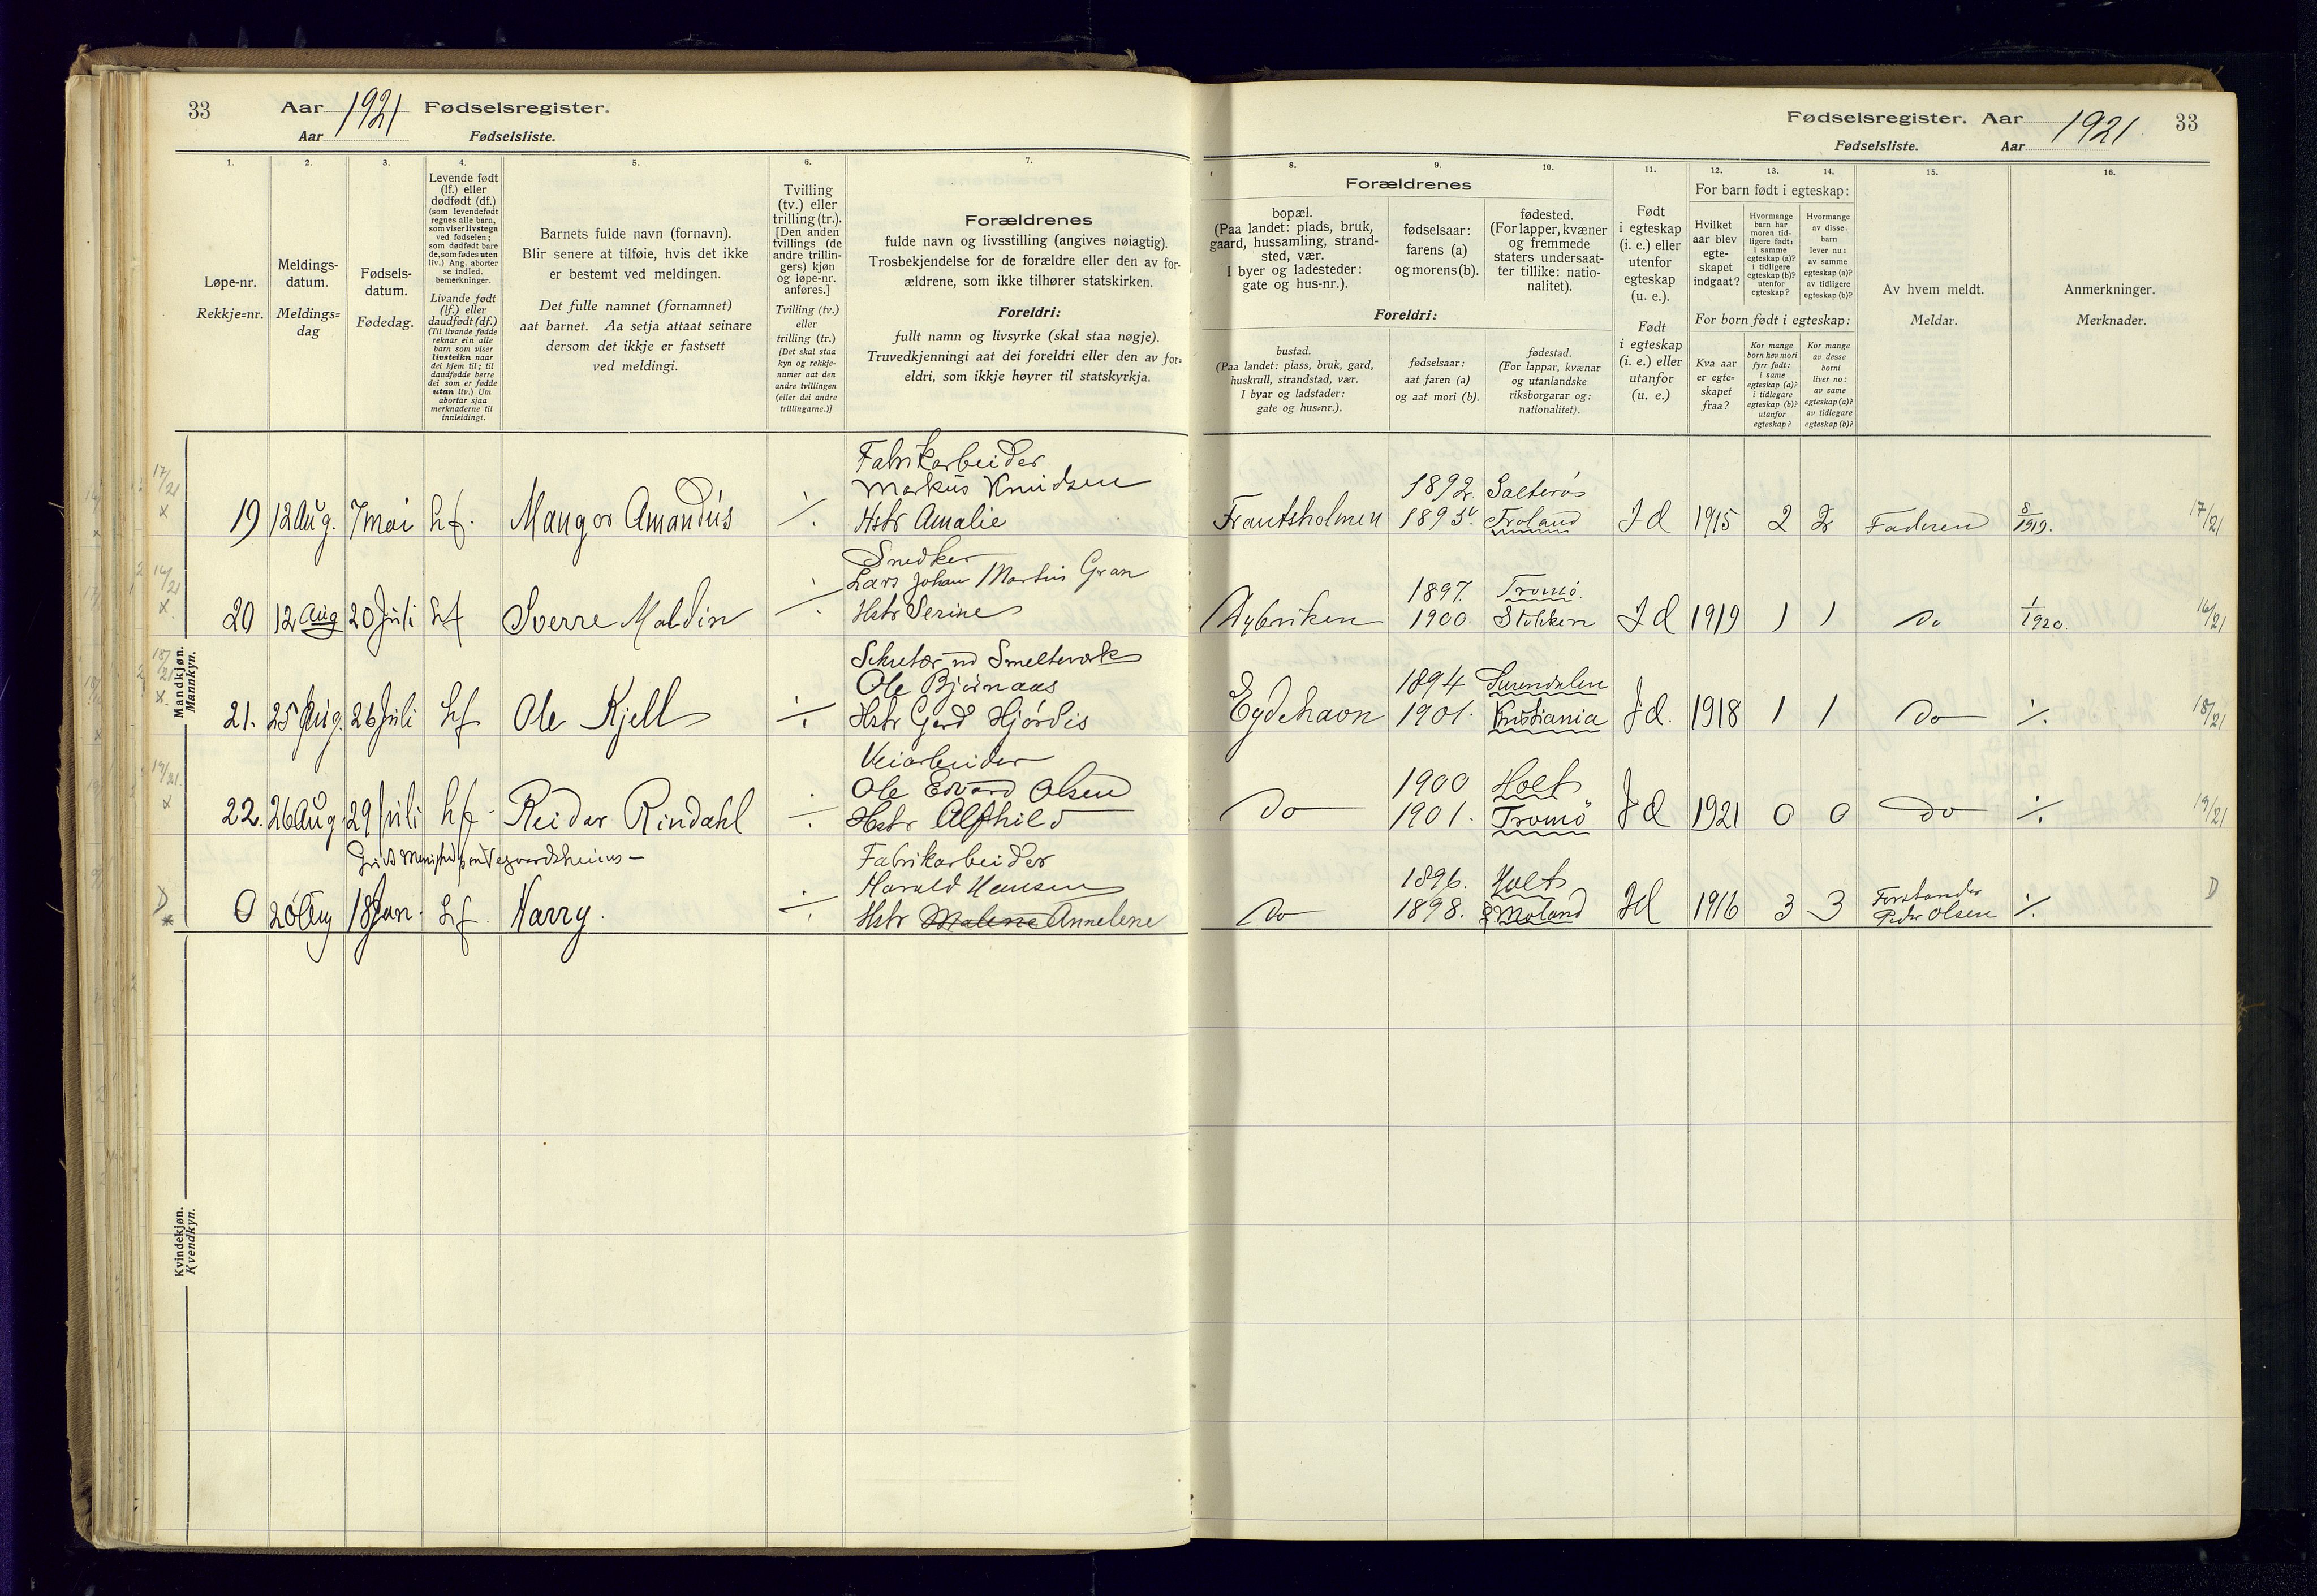 33
Aar 1921 Fødselsregister.
Aar Fødselsliste.
1. 2. 3. 4. 5. 6. 7.
Løpe-nr.
Rekkje=nr.
Meldings-
datum.
Meldings=
dag
Fødsels-
datum.
Fødedag.
Levende født
(lf.) eller
dødfødt (df.)
(som levendefødt
regnes alle barn,
som viser livstegn
ved fødselen;
som dødfødt bare
de, som fødes uten
liv.) Ang. aborter
se indled.
bemerkninger.
Livande født
(lf.) eller
daudfødt (df.)
(Til livande fødde
reknar ein alle
barn som viser
livsteikn naar
dei kjem til; til
daudfødde berre
dei som er fødde
utan liv.) Um
abortar sjaa
merknaderne til
innleidingi.
Barnets fulde navn (fornavn).
Blir senere at tilføie, hvis det ikke
er bestemt ved meldingen.
Det fulle namnet (fornamnet)
aat barnet. Aa setja attaat seinare
dersom det ikkje er fastsett
ved meldingi.
Tvilling
(tv.) eller
trilling (tr.).
[Den anden
tvillings (de
andre trillin-
gers) kjøn
og løpe-nr.
anføres.]
Tvilling (tv.)
eller
trilling (tr.)
[Det skal staa
kyn og rekkje-
numer aat den
andre tvillingen
(eller dei andre
trillingarne.)]
Forældrenes
fulde navn og livsstilling (angives nøiagtig).
Trosbekjendelse for de forældre eller den av for-
ældrene, som ikke tilhører statskirken.
Foreldri:
fullt namn og livsyrke (skal staa nøgje).
Truvedkjenningi aat dei foreldri eller den av for=
eldri, som ikkje høyrer til statskyrkja.
Mandkjøn.
Mannkyn.
17/21
x
Fabrikarbeider
Markus Knudsen
19 12 Aug. 7 mai Lf. Mangor Amandus ÷ Hstr Amalie
16/21
x
Snedker
Lars Johan Martin Gran
20 12 Aug 20 Juli Lf Sverre Maldin ÷ Hstr Serine
18/21
x
Sekretær ved Smelteverk
Ole Bjørnaas
21. 25 Aug. 26 Juli Lf Ole Kjell ÷ Hstr Gerd Hjørdis
19/21
x
Veiarbeider
Ole Edvard Olsen
22. 26 Aug 29 Juli Lf Reidar Rindahl ÷ Hstr Alfhild
Fabrikarbeider
Harald Hansen
D
0 18 Jan. Lf. Harry. ÷ Hstr Malene Annelene
Kvindekjøn.
Kvendkyn.
Fødselsregister. Aar 1921 33
Fødselsliste. Aar
8. 9. 10. 11. 12. 13. 14. 15. 16.
Forældrenes
bopæl.
(Paa landet: plads, bruk,
gaard, hussamling, strand-
sted, vær.
I byer og ladesteder:
gate og hus-nr.).
fødselsaar:
farens (a)
og morens (b).
fødested.
(For lapper, kvæner
og fremmede
staters undersaat-
ter tillike: natio-
nalitet).
Foreldri:
bustad.
(Paa landet: plass, bruk, gard,
huskrull, strandstad, vær.
I byar og ladstader:
gate og hus=nr.).
fødselsaar:
aat faren (a)
og aat mori (b).
fødestad.
(For lappar, kvænar
og utanlandske
riksborgarar og:
nationalitet).
Født
i egteskap
(i. e.) eller
utenfor
egteskap
(u. e.).
Født
i egteskap
(i. e.) eller
utanfor
(u. e.)
For barn født i egteskap:
Hvilket
aar blev
egte-
skapet
indgaat?
Hvormange
barn har
moren tid-
ligere født:
i samme
egteskap (a)?
i tidligere
egteskap (b)?
utenfor
egteskap?
Hvormange
av disse
barn
lever nu:
av samme
egteskap (a)?
av tidligere
egteskap (b)?
For born født i egteskap:
Kva aar
er egte=
skapet
fraa?
Kor mange
born hev mori
fyrr født:
i same
egteskap (a)?
i tidlegare
egteskap (b)?
utanfor
egteskap?
Kor mange
av desse
borni
liver no:
av same
egteskap (a)?
av tidlegare
egteskap (b)?
Av hvem meldt.
Meldar.
Anmerkninger.
Merknader.
1892. Salterøs
Frantsholmen 1895. Froland Id 1915 2 2 Faderen 8/1919. 17/21
1897. Tromø.
1900. Stokken Id 1919 1 1 Do 1/1920. 16/21
1894 Surendalen
Eydehavn 1901. Kristiania Id. 1918 1 1 Do ÷ 18/21
1900 Holt
Do 1901. Tromö Id 1921 0 0 Do ÷ 19/21
1896. Holt
Do 1898. Moland Id 1916 3 3 Forstander
Peder Olsen ÷ D